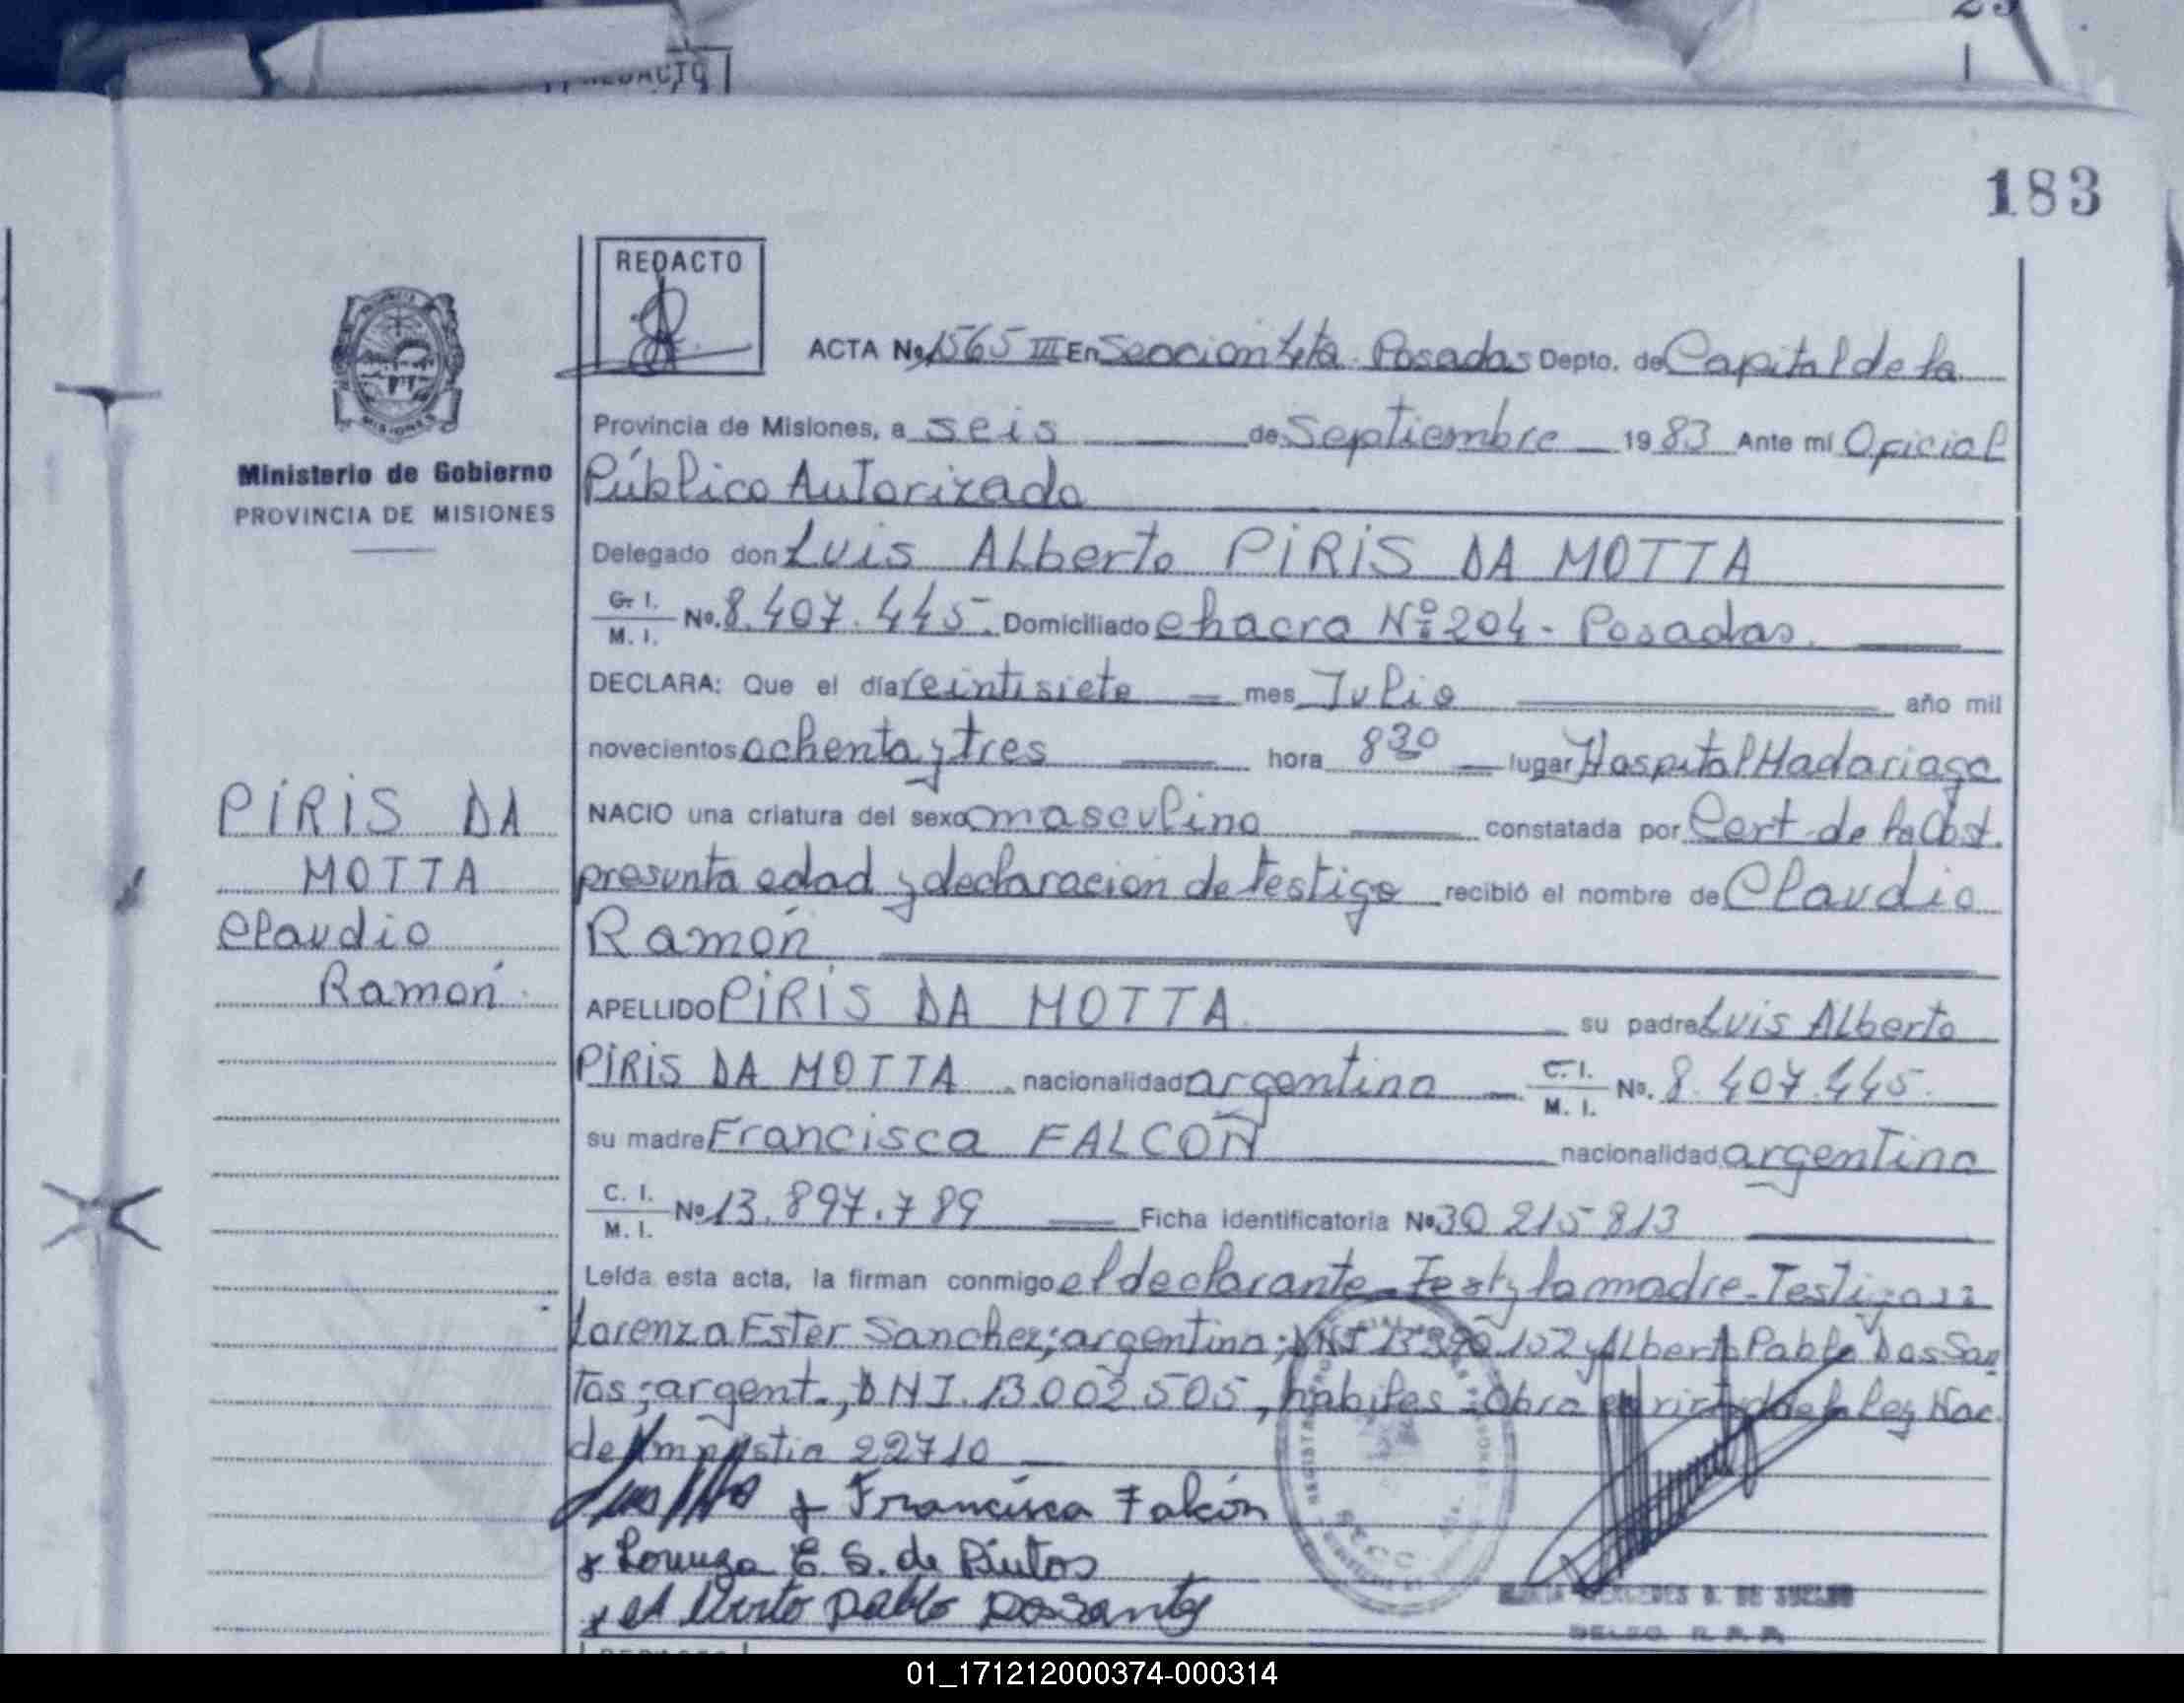 REDACTO
183
REDACTO
ACTA No. 1565 III En Seccion 4ta. Posadas Depto. de Capital de la
Provincia de Misiones, a seis de Septiembre 1983 Ante mí Oficial
Público Autorizado
Ministerio de Gobierno
PROVINCIA DE MISIONES
Delegado don Luis Alberto PIRIS DA MOTTA
C. I. M. I. No. 8.407.445. Domiciliado chacra Nº 204 - Posadas.
DECLARA: Que el día veintisiete mes Julio año mil
novecientos ochenta y tres hora 8 30 lugar Hospital Madariaga
NACIO una criatura del sexo masculino constatada por Cert. de la Obst.
presunta edad y declaracion de testigo recibió el nombre de Claudio
Ramón
PIRIS DA
MOTTA
Claudio
Ramón.
APELLIDO PIRIS DA MOTTA su padre Luis Alberto
PIRIS DA MOTTA nacionalidad argentina C. I. M. I. No. 8.407.445.
su madre Francisca FALCON nacionalidad argentina
C. I. M. I. No 13.897.789 Ficha identificatoria No 30 215 813
Leída esta acta, la firman conmigo el declarante - Test y la madre - Testigos
Lorenza Ester Sanchez; argentina; DNI 13 102 y Alberto Pablo Dos San
tos; argent., DNI. 13.002.505, habiles - Obra en virtud de la Ley Nac.
de Amnistia 22710
Francisca Falcón
Lorenza E S. de Pintos
Alberto Pablo Dosantos
DELEG. R. P. P.
01_171212000374-000314